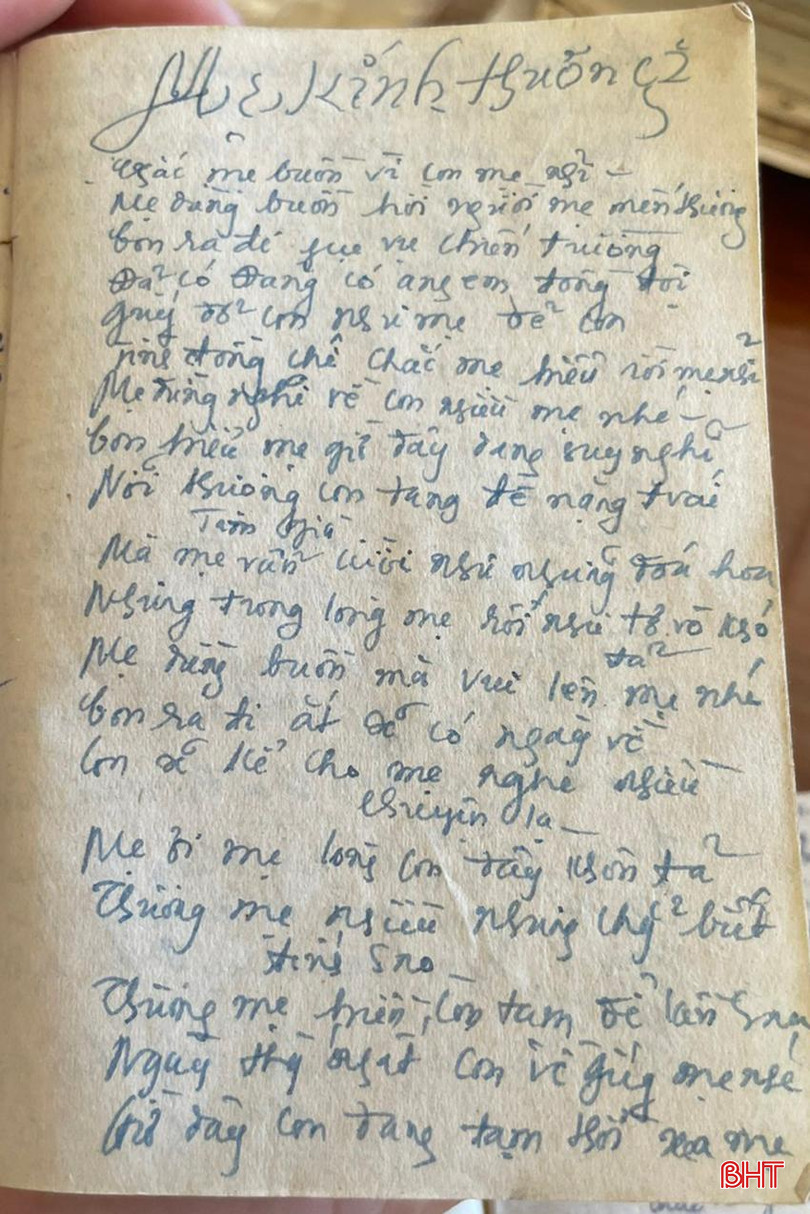 Mẹ Kính thương
Chắc mẹ buồn vì con mẹ nhỉ –
Mẹ đừng buồn hỡi người mẹ mến thương
Con ra đi phục vụ chiến trường
Đã có Đảng có anh em đồng đội
Giúp đỡ con như mẹ đẻ con
Tình đồng chí chắc mẹ hiểu rồi mẹ nhỉ
Mẹ đừng nghĩ về con nhiều mẹ nhé –
Con hiểu mẹ giờ đây đang suy nghĩ
Nỗi thương con đang đè nặng trái
Tim già
Mà mẹ vẫn cười như những đoá hoa
Nhưng trong lòng mẹ rối như tơ vò
Mẹ đừng buồn mà vui lên mẹ nhé
Con ra đi ắt sẽ có ngày về
Con sẽ kể cho mẹ nghe nhiều
chuyện lạ –
Mẹ ơi mẹ lòng con đây khôn tả
Thương mẹ nhiều nhưng chẳng biết
tính sao –
Thương mẹ hiền, con tạm để lần sau
Ngày thống nhất con về giúp mẹ nhé
Giờ đây con đang tạm thời xa mẹ
BHT